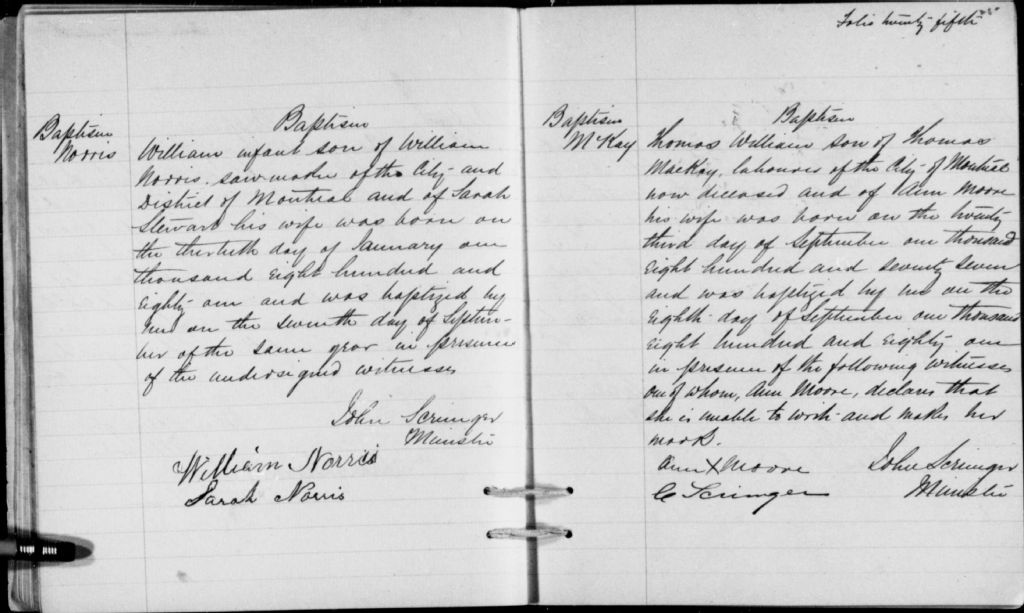 Baptism
Norris
Baptism
William infant son of William
Norris, sawmaker of the City and
District of Montreal and of Sarah
Stewart his wife was born on
the thirtieth day of January one
thousand eight hundred and
eighty one and was baptized by
me on the seventh day of Septem-
ber of the same year in presence
of the undersigned witnesses
John Scrimger
Minister
William Norris
Sarah Norris
Folio twenty fifth
Baptism
McKay
Baptism
Thomas William son of Thomas
MacKay, labourer of the City of Montreal
now deceased and of Ann Moore
his wife was born on the twenty
third day of September one thousand
eight hundred and seventy seven
and was baptized by me on the
eighth day of September one thousand
eight hundred and eighty one
in presence of the following witnesses
one of whom, Ann Moore, declares that
she is unable to write and makes her
mark.
Ann X Moore John Scrimger
C Scrimger Minister